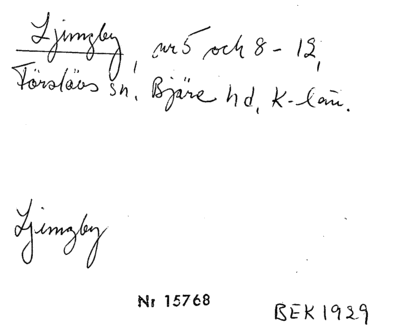 Ljungby, nr 5 och 8 - 12,
Förslövs sn, Bjäre hd, K-län.
Ljungby
Nr 15768
BEK 1929